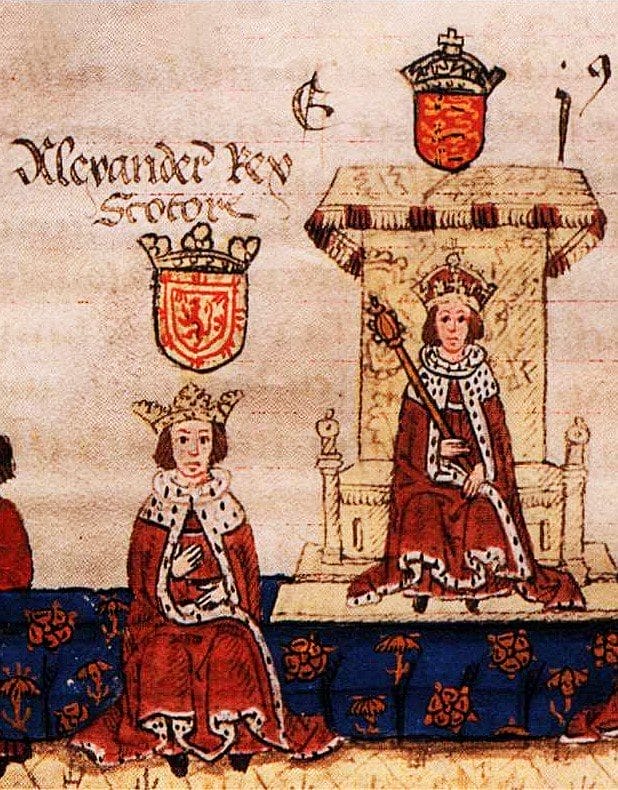 E
Alexander Rex
Scotore